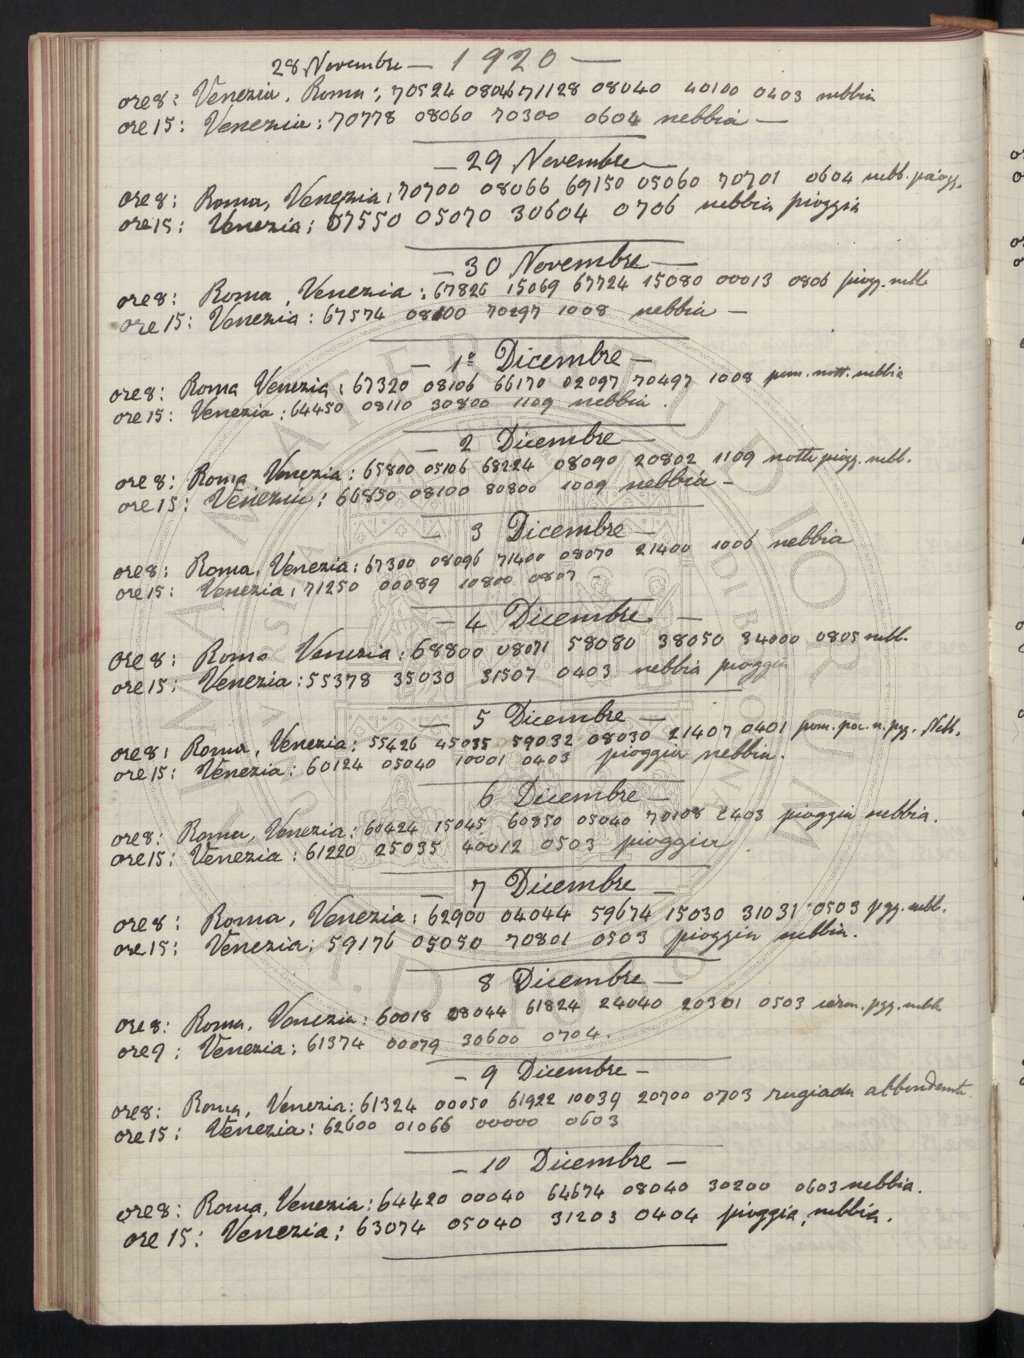 28 Novembre — 1920 —
ore 8: Venezia, Roma: 70524 08046 71128 08040 40100 0403 nebbia
ore 15: Venezia: 70778 08060 70300 0604 nebbia —
— 29 Novembre —
ore 8: Roma, Venezia: 70700 08066 69150 05060 70701 0604 nebb. piogg.
ore 15: Venezia: 67550 05070 30604 0706 nebbia pioggia
— 30 Novembre —
ore 8: Roma, Venezia: 67826 15069 67724 15080 00013 0806 piogg. nebb.
ore 15: Venezia: 67574 08100 70297 1008 nebbia —
— 1º Dicembre —
ore 8: Roma Venezia: 67320 08106 66170 02097 70497 1008 pom. nott. nebbia
ore 15: Venezia: 64450 08110 30800 1109 nebbia.
— 2 Dicembre —
ore 8: Roma, Venezia: 65800 05106 68224 08090 20802 1109 notte piogg. nebb.
ore 15: Venezia: 66850 08100 80800 1009 nebbia —
— 3 Dicembre —
ore 8: Roma, Venezia: 67300 08096 71400 08070 21400 1006 nebbia
ore 15: Venezia: 71250 00089 10800 0807 —
— 4 Dicembre —
ore 8: Roma Venezia: 68800 08071 58080 38050 84000 0805 nebb.
ore 15: Venezia: 55378 35030 31507 0403 nebbia pioggia
— 5 Dicembre —
ore 8: Roma, Venezia: 55426 45035 59032 08030 21407 0401 pom. n. pgg. Nebb.
ore 15: Venezia: 60124 05040 10001 0403 pioggia nebbia.
6 Dicembre —
ore 8: Roma, Venezia: 60424 15045 60850 05040 70108 2403 pioggia nebbia.
ore 15: Venezia: 61220 25035 40012 0503 pioggia.
— 7 Dicembre —
ore 8: Roma, Venezia: 62900 04044 59674 15030 31031 0503 pgg. nebb.
ore 15: Venezia: 59176 05050 70801 0503 pioggia nebbia.
8 Dicembre —
ore 8: Roma, Venezia: 60018 08044 61824 24040 20301 0503 pgg. nebb.
ore 9: Venezia: 61374 00079 30600 0704.
— 9 Dicembre —
ore 8: Roma, Venezia: 61324 00050 61922 10039 20700 0703 rugiada abbondante
ore 15: Venezia: 62600 01066 00000 0603
— 10 Dicembre —
ore 8: Roma, Venezia: 64420 00040 64674 08040 30200 0603 nebbia.
ore 15: Venezia: 63074 05040 31203 0404 pioggia, nebbia.